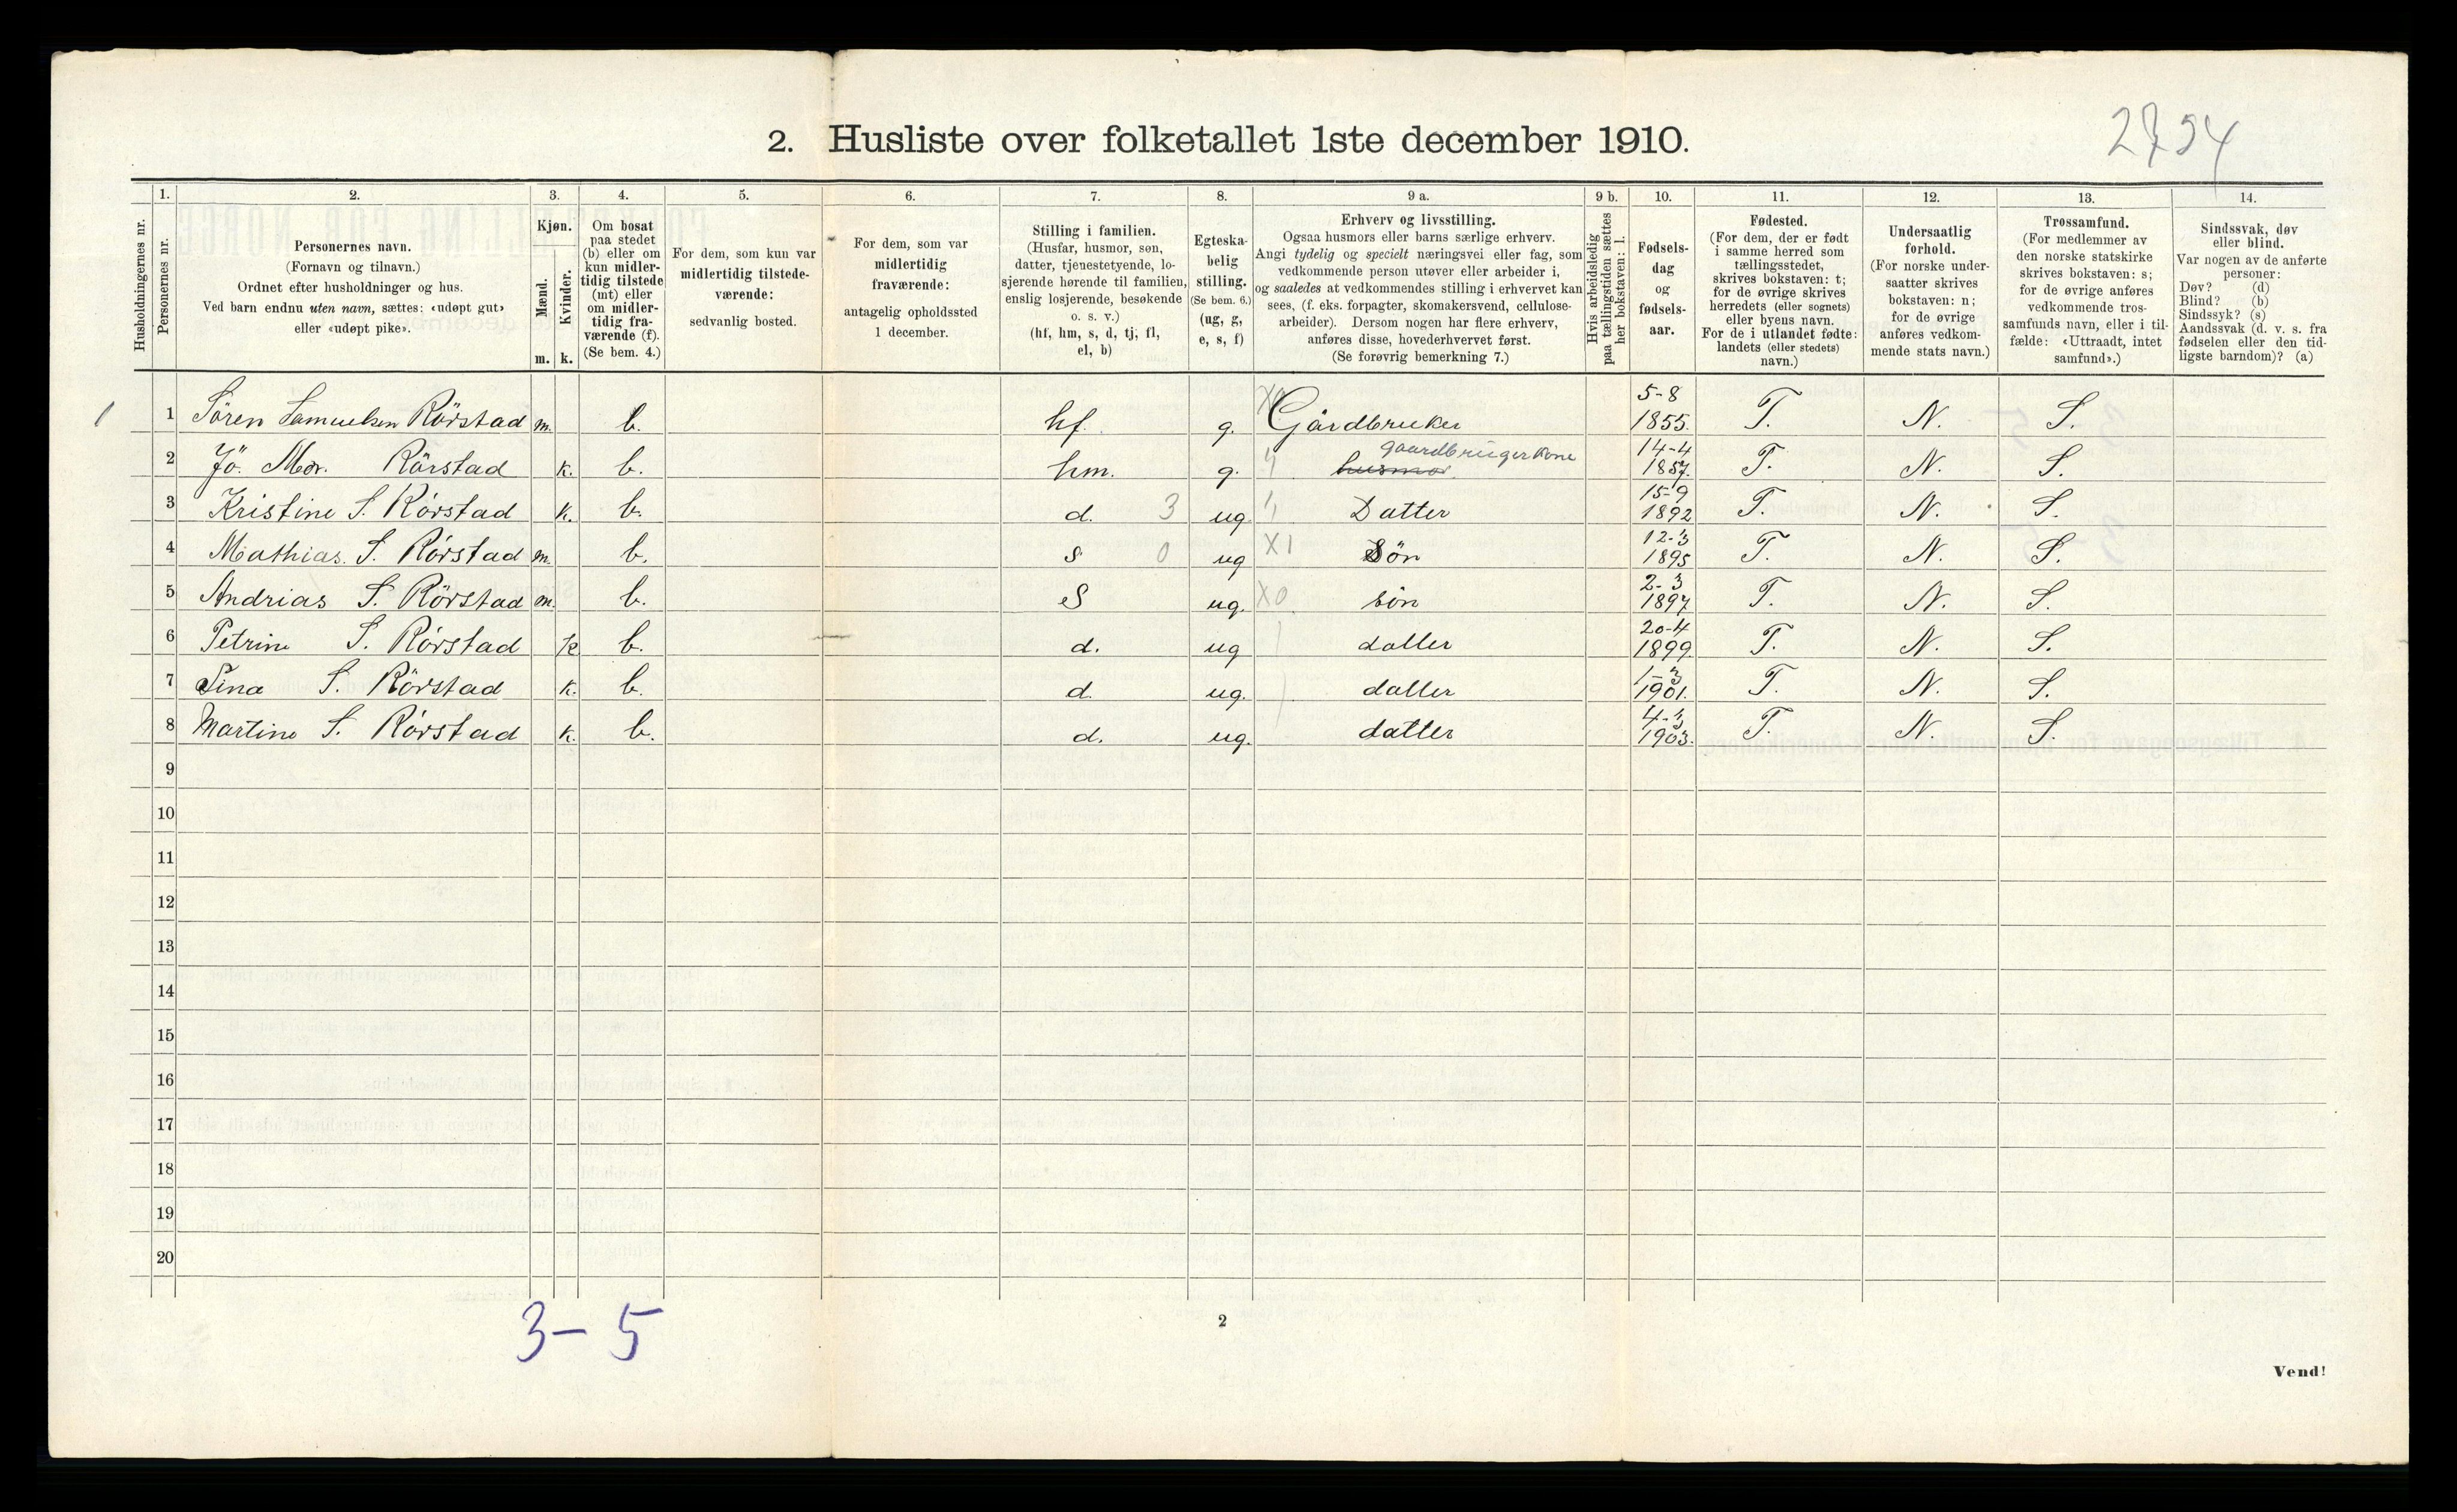 2794
2. Husliste over folketallet 1ste december 1910.
1. 2. 3. 4. 5. 6. 7. 8. 9 a. 9 b. 10. 11. 12. 13. 14.
Husholdningernes nr.
Personernes nr.
Personernes navn.
(Fornavn og tilnavn.)
Ordnet efter husholdninger og hus.
Ved barn endnu uten navn, sættes: «udøpt gut»
eller «udøpt pike».
Kjøn.
Mænd.
Kvinder.
m. k.
Om bosat
paa stedet
(b) eller om
kun midler-
tidig tilstede
(mt) eller
om midler-
tidig fra-
værende (f).
(Se bem. 4.)
For dem, som kun var
midlertidig tilstede-
værende:
sedvanlig bosted.
For dem, som var
midlertidig
fraværende:
antagelig opholdssted
1 december.
Stilling i familien.
(Husfar, husmor, søn,
datter, tjenestetyende, lo-
sjerende hørende til familien,
enslig losjerende, besøkende
o. s. v.)
(hf, hm, s, d, tj, fl,
el, b)
Egteska-
belig
stilling.
(Se bem. 6.)
(ug, g,
e, s, f)
Erhverv og livsstilling.
Ogsaa husmors eller barns særlige erhverv.
Angi tydelig og specielt næringsvei eller fag, som
vedkommende person utøver eller arbeider i,
og saaledes at vedkommendes stilling i erhvervet kan
sees, (f. eks. forpagter, skomakersvend, cellulose-
arbeider). Dersom nogen har flere erhverv,
anføres disse, hovederhvervet først.
(Se forøvrig bemerkning 7.)
Hvis arbeidsledig
paa tællingstiden sættes
her bokstaven: l.
Fødsels-
dag
og
fødsels-
aar.
Fødested.
(For dem, der er født
i samme herred som
tællingsstedet,
skrives bokstaven: t;
for de øvrige skrives
herredets (eller sognets)
eller byens navn.
For de i utlandet fødte:
landets (eller stedets)
navn.)
Undersaatlig
forhold.
(For norske under-
saatter skrives
bokstaven: n;
for de øvrige
anføres vedkom-
mende stats navn.)
Trossamfund.
(For medlemmer av
den norske statskirke
skrives bokstaven: s;
for de øvrige anføres
vedkommende tros-
samfunds navn, eller i til-
fælde: «Uttraadt, intet
samfund».)
Sindssvak, døv
eller blind.
Var nogen av de anførte
personer:
Døv? (d)
Blind? (b)
Sindssyk? (s)
Aandssvak (d. v. s. fra
fødselen eller den tid-
ligste barndom)? (a)
1 1 Sören Samuelsen Rörstad m. b. hf. g. X0 Gårdbruker 5-8 1855. T. N. S.
2 Jö. Mor. Rörstad k. b. hm. g. husmor gaardbrugerkone 14-4 1857. T. N. S.
3 Kristine S. Rörstad k. b. d. 3 ug Datter 15-9 1892 T. N. S.
4 Mathias. S. Rörstad m. b. s 0 ug X1 Sön 12-3 1895 T. N. S.
5 Andrias S. Rörstad m. b. S ug. X0 sön 2-3 1897 T. N. S.
6 Petrine S. Rörstad k b. d. ug datter 20-4 1899. T. N. S.
7 Sina S. Rörstad k. b. d. ug. datter 1-3 1901. T. N. S.
8 Martine S. Rörstad k. b. d. ug. datter 4-3 1903. T. N. S.
9
10
11
12
13
14
15
16
17
18
19
20
3-5
2
Vend!